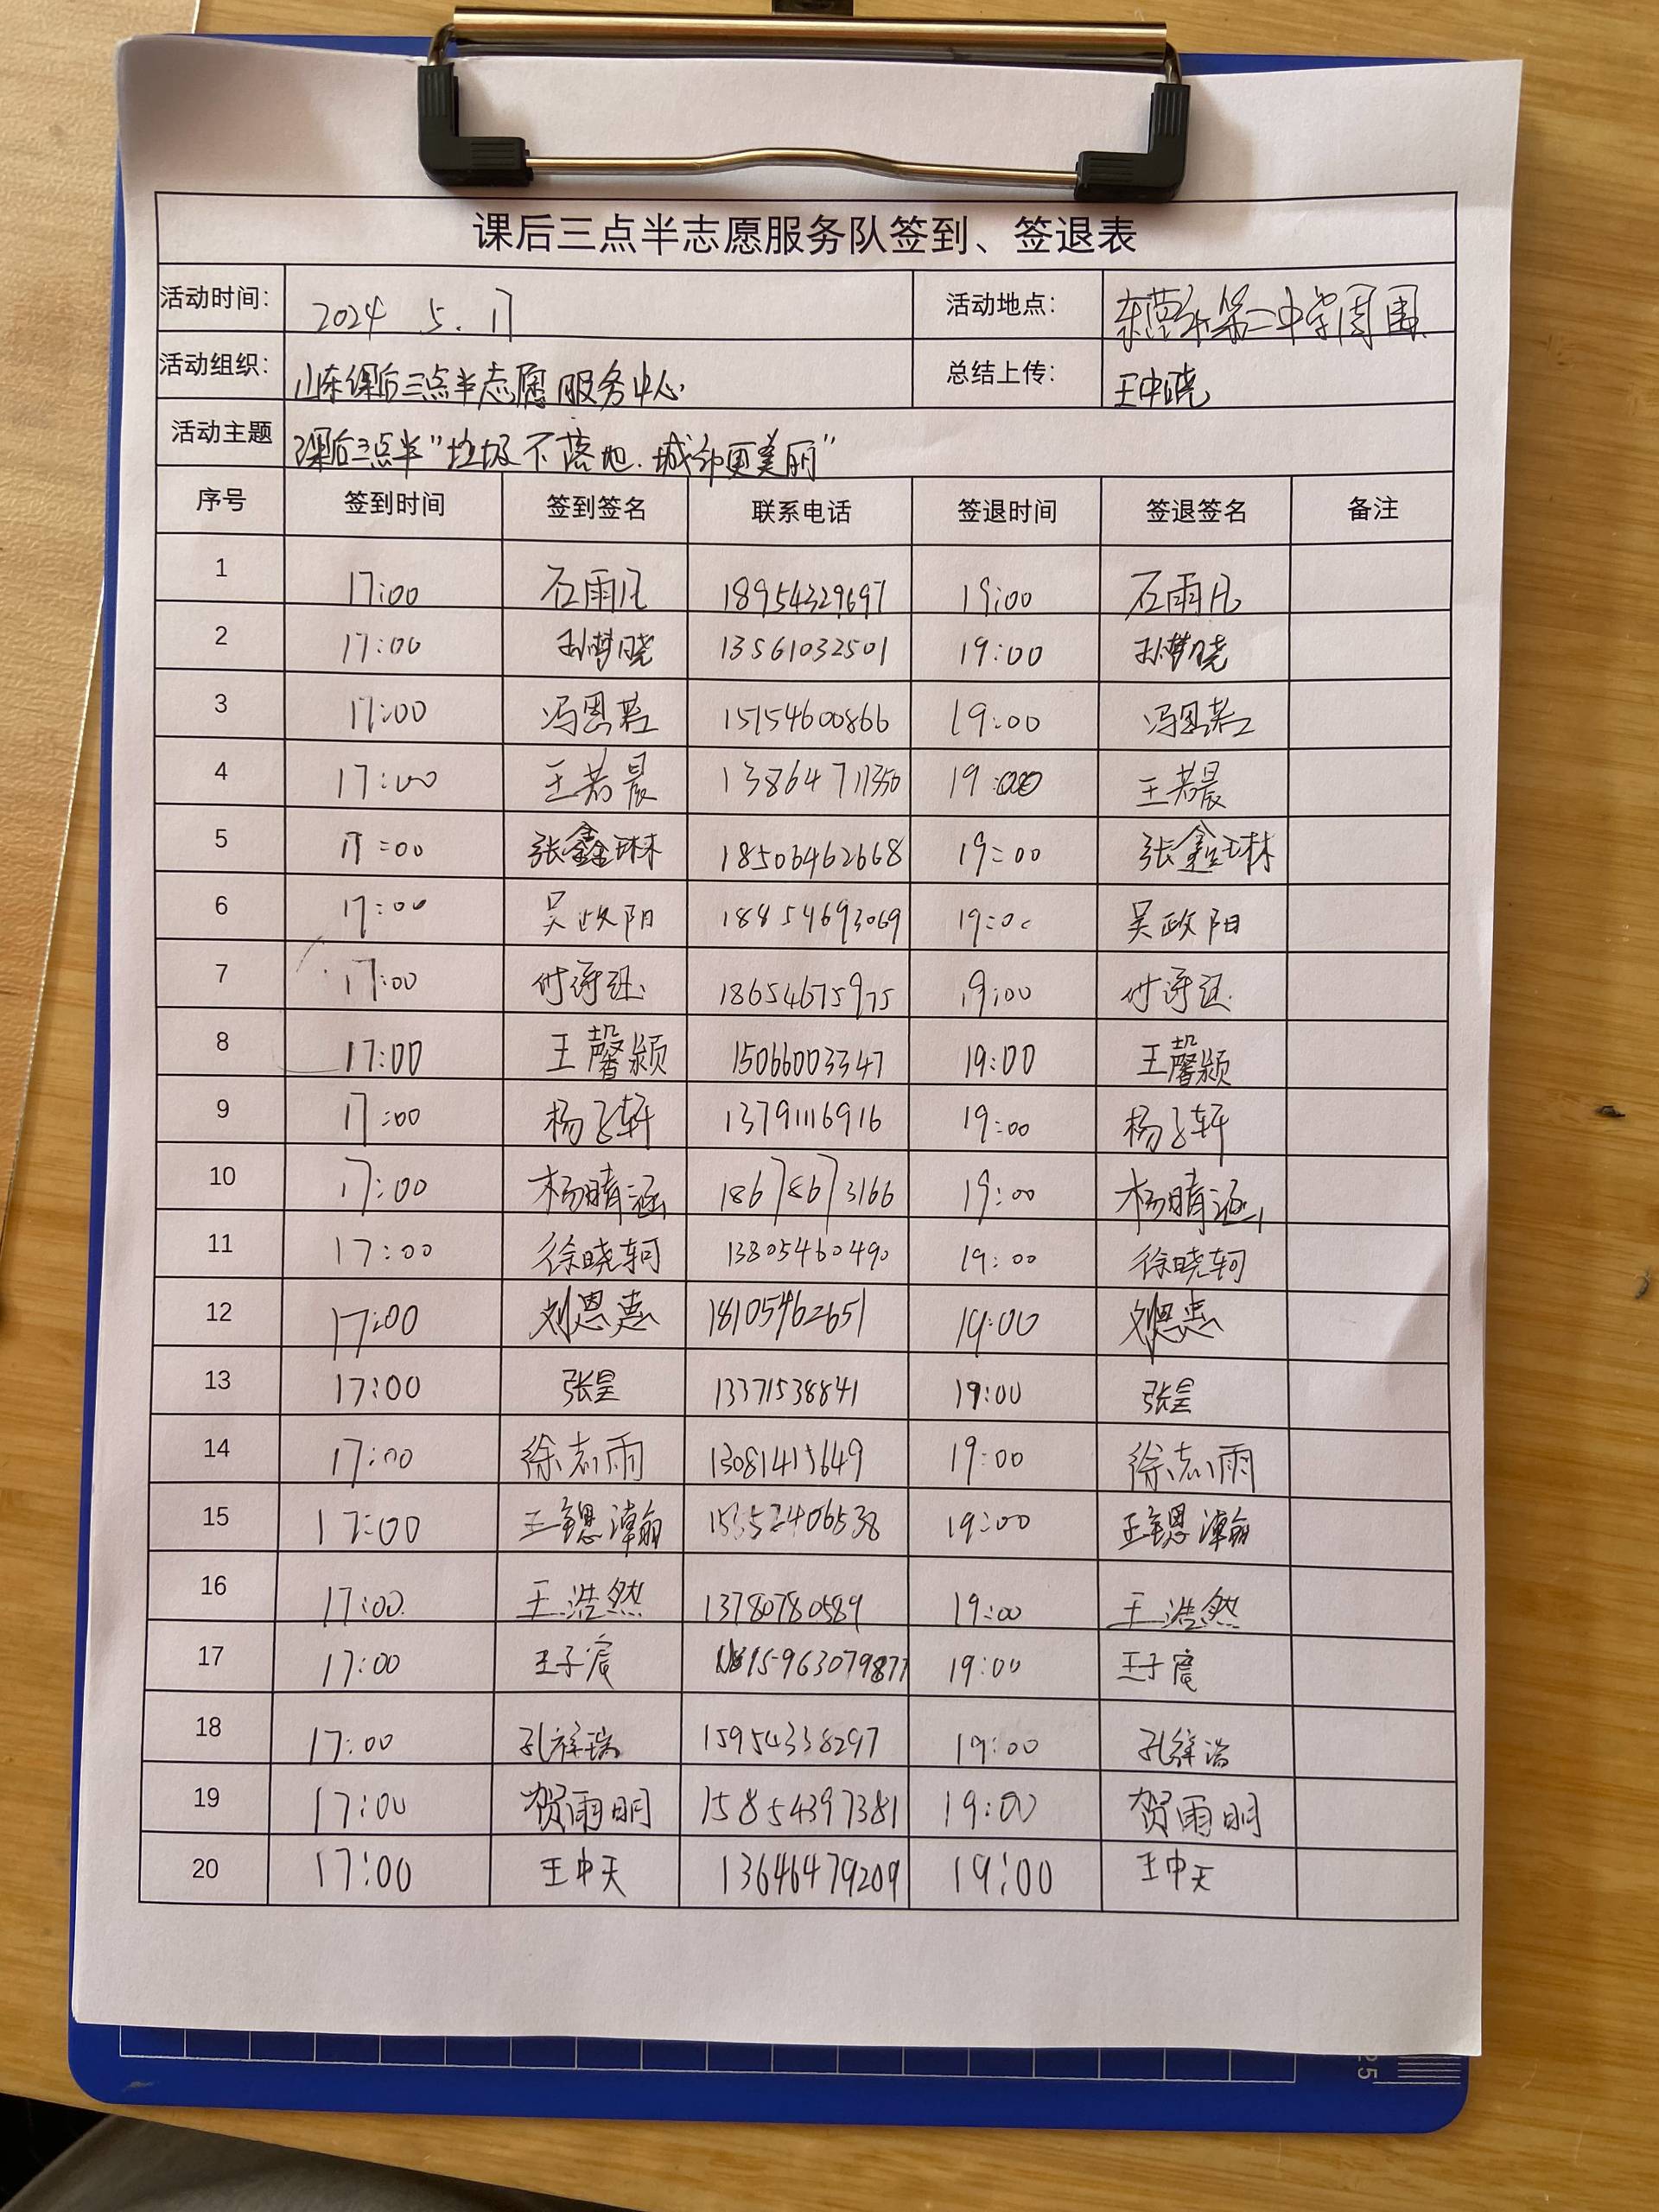 课后三点半志愿服务队签到、签退表
活动时间： 2024 5.17 活动地点： 东营市第二中学周围
活动组织： 山东课后三点半志愿服务中心 总结上传： 王中晓
活动主题 课后三点半"垃圾不落地.城市更美丽"
序号 签到时间 签到签名 联系电话 签退时间 签退签名 备注
1 17:00 石雨凡 18954329697 19:00 石雨凡
2 17:00 孙梦晓 13561032501 19:00 孙梦晓
3 17:00 冯恩若 15154600866 19:00 冯恩若
4 17:00 王若晨 19:00 王若晨
5 17:00 张鑫琳 18506462668 19:00 张鑫琳
6 17:00 吴政阳 18454693069 19:00 吴政阳
7 17:00 18654675975 19:00
8 17:00 王馨颍 15066003347 19:00 王馨颍
9 17:00 杨子轩 13791116916 19:00 杨子轩
10 17:00 杨晴涵 18678673166 19:00 杨晴涵
11 17:00 徐晓轲 13805460490 19:00 徐晓轲
12 17:00 刘恩惠 18105462651 19:00 刘恩惠
13 17:00 张昱 13371538841 19:00 张昱
14 17:00 徐志雨 13081415649 19:00 徐志雨
15 17:00 王锶瀚 19:00 王锶瀚
16 17:00 王浩然 13780780589 19:00 王浩然
17 17:00 王子宸 15963079877 19:00 王子宸
18 17:00 孔祥瑞 15954338297 19:00 孔祥瑞
19 17:00 贺雨明 15854397381 19:00 贺雨明
20 17:00 王中天 13646479209 19:00 王中天
25